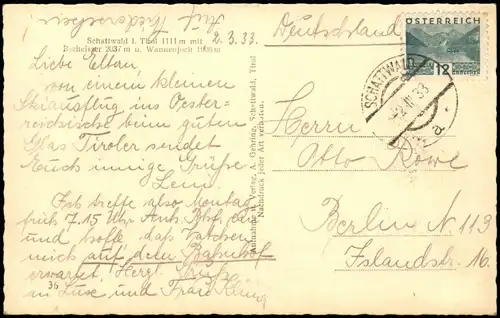 Auf Wiedersehen!
Schattwald i. Tirol 1111 m mit
Bscheisser 2037 m u. Wannenjoch 1908 m
2.3.33.
Liebe Eltern
von einem kleinen
Skiausflug ins Oester-
reichische beim guten
Glas Tiroler sendet
Euch innige Grüße
Leni.
Ich treffe also Montag
früh 7.15 Uhr Anh. Bhf. ein
und hoffe, daß Vatchen
mich auf dem Bahnhof
erwartet. Herzl. Grüße
an Luse und Frau Kling
36
Aufnahme u. Verlag, A. Gehring, Schattwald, Tirol
Nachdruck jeder Art verboten.
Deutschland
ÖSTERREICH
12
GROSCHEN
SCHATTWALD
-2.III.33
a
Herrn
Otto Rowe
Berlin N. 113
Islandstr. 16.